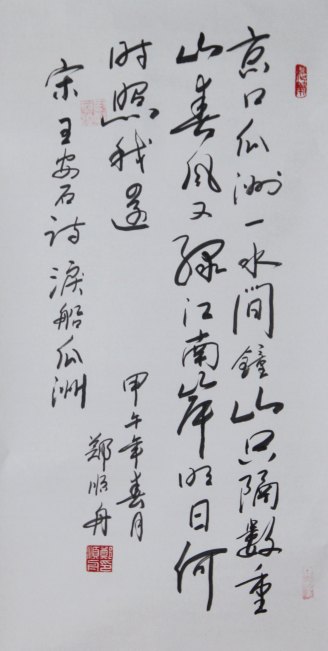 京口瓜洲一水间鐘山只隔數重
山春风又绿江南岸明日何
时照我還
宋王安石诗淚船瓜洲
甲午年春月
郑顺舟